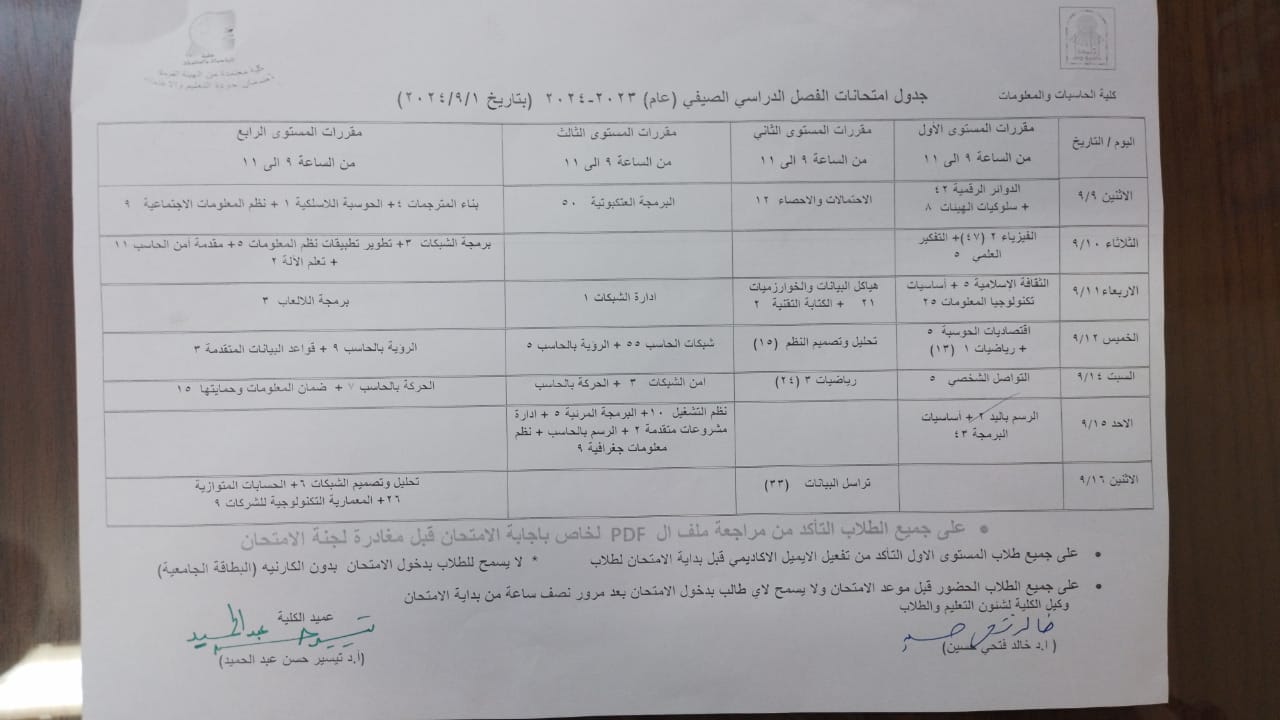 كلية الحاسبات والمعلومات
جدول امتحانات الفصل الدراسي الصيفي (عام) ٢٠٢٣-٢٠٢٤ (بتاريخ ٢٠٢٤/٩/١)
اليوم / التاريخ
مقررات المستوى الأول
من الساعة ٩ الى ١١
مقررات المستوى الثاني
من الساعة ٩ الى ١١
مقررات المستوى الثالث
من الساعة ٩ الى ١١
مقررات المستوى الرابع
من الساعة ٩ الى ١١
الاثنين ٩/٩
الدوائر الرقمية ٤٢
+ سلوكيات الهيئات ٨
الاحتمالات والاحصاء ١٢
البرمجة العنكبوتية ٥٠
بناء المترجمات ٤+ الحوسبة اللاسلكية ١ + نظم المعلومات الاجتماعية ٩
الثلاثاء ٩/١٠
الفيزياء ٢ (٤٧)+ التفكير
العلمي ٥
برمجة الشبكات ٣+ تطوير تطبيقات نظم المعلومات ٥+ مقدمة أمن الحاسب ١١
+ تعلم الألة ٢
الاربعاء ٩/١١
الثقافة الاسلامية ٥ + أساسيات
تكنولوجيا المعلومات ٢٥
هياكل البيانات والخوارزميات
٢١ + الكتابة التقنية ٢
ادارة الشبكات ١
برمجة اللالعاب ٣
الخميس ٩/١٢
اقتصاديات الحوسبة ٥
+ رياضيات ١ (١٣)
تحليل وتصميم النظم (١٥)
شبكات الحاسب ٥٥ + الرؤية بالحاسب ٥
الرؤية بالحاسب ٩ + قواعد البيانات المتقدمة ٣
السبت ٩/١٤
التواصل الشخصي ٥
رياضيات ٣ (٢٤)
امن الشبكات ٣ + الحركة بالحاسب
الحركة بالحاسب ٧ + ضمان المعلومات وحمايتها ١٥
الاحد ٩/١٥
الرسم باليد ٢ + أساسيات
البرمجة ٤٣
نظم التشغيل ١٠+ البرمجة المرئية ٥ + ادارة
مشروعات متقدمة ٢ + الرسم بالحاسب + نظم
معلومات جغرافية ٩
الاثنين ٩/١٦
تراسل البيانات (٣٣)
تحليل وتصميم الشبكات ٦+ الحسابات المتوازية
٢٦+ المعمارية التكنولوجية للشركات ٩
• على جميع الطلاب التأكد من مراجعة ملف ال PDF لخاص باجابة الامتحان قبل مغادرة لجنة الامتحان
• على جميع طلاب المستوى الاول التأكد من تفعيل الايميل الاكاديمي قبل بداية الامتحان لطلاب * لا يسمح للطلاب بدخول الامتحان بدون الكارنيه (البطاقة الجامعية)
• على جميع الطلاب الحضور قبل موعد الامتحان ولا يسمح لاي طالب بدخول الامتحان بعد مرور نصف ساعة من بداية الامتحان
وكيل الكلية لشئون التعليم والطلاب
(ا.د خالد فتحي حسين)
عميد الكلية
تيسير حسن عبد الحميد
(أ.د تيسير حسن عبد الحميد)